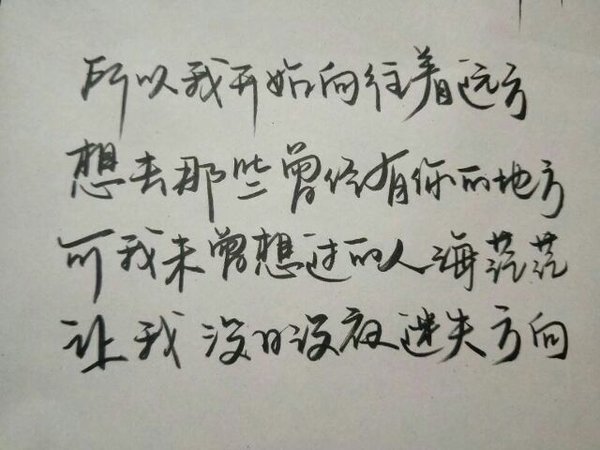 所以我开始向往着远方
想去那些曾经有你的地方
可我未曾想过的人海茫茫
让我没日没夜迷失方向